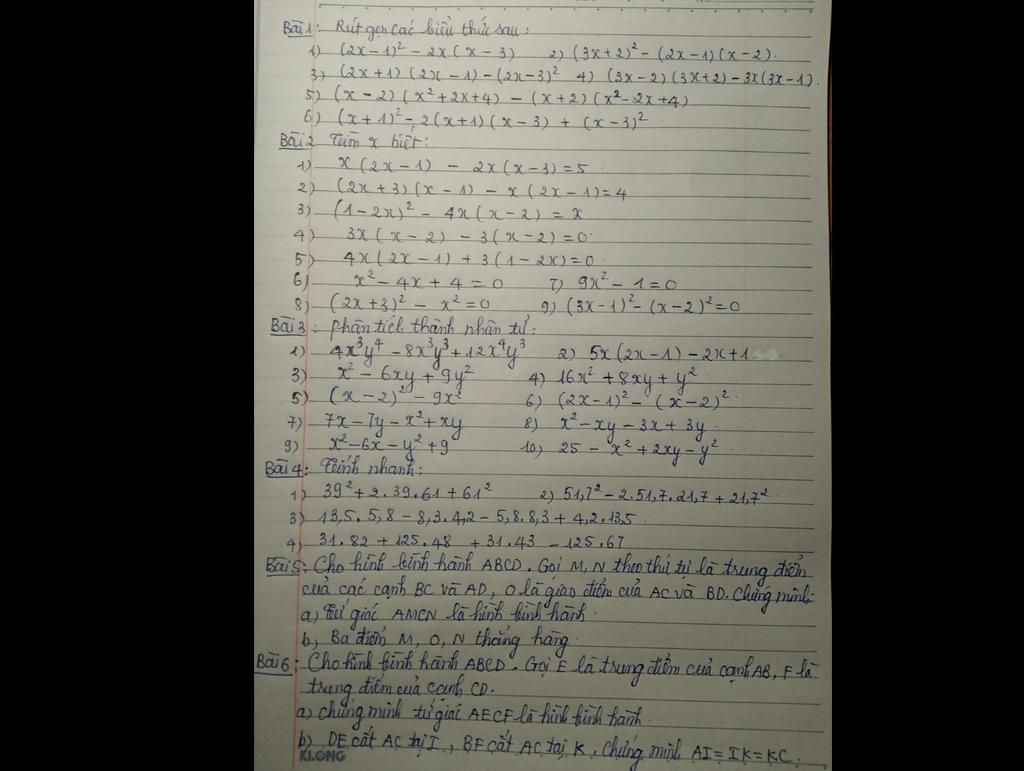 Bài 1: Rút gọn các biểu thức sau:
1) (2x-1)² - 2x(x-3) 2) (3x+2)² - (2x-1)(x-2).
3) (2x+1)(2x-1) - (2x-3)² 4) (3x-2)(3x+2) - 3x(3x-1).
5) (x-2)(x²+2x+4) - (x+2)(x²-2x+4)
6) (x+1)² - 2(x+1)(x-3) + (x-3)²
Bài 2 Tìm x biết:
1) x(2x-1) - 2x(x-3) = 5
2) (2x+3)(x-1) - x(2x-1) = 4
3) (1-2x)² - 4x(x-2) = x
4) 3x(x-2) - 3(x-2) = 0
5) 4x(2x-1) + 3(1-2x) = 0
6) x² - 4x + 4 = 0 7) 9x² - 1 = 0
8) (2x+3)² - x² = 0 9) (3x-1)² - (x-2)² = 0
Bài 3: Phân tích thành nhân tử:
1) 4x³y⁴ - 8x³y³ + 12x⁴y³ 2) 5x(2x-1) - 2x+1
3) x² - 6xy + 9y² 4) 16x² + 8xy + y²
5) (x-2)² - 9x² 6) (2x-1)² - (x-2)²
7) 7x - 7y - x² + xy 8) x² - xy - 3x + 3y
9) x² - 6x - y² + 9 10) 25 - x² + 2xy - y²
Bài 4: Tính nhanh:
1) 39² + 2.39.61 + 61² 2) 51,7² - 2.51,7.21,7 + 21,7²
3) 13,5.5,8 - 8,3.4,2 - 5,8.8,3 + 4,2.13,5
4) 31.82 + 125.48 + 31.43 - 125.67
Bài 5: Cho hình bình hành ABCD. Gọi M, N theo thứ tự là trung điểm
của các cạnh BC và AD, O là giao điểm của AC và BD. Chứng minh:
a) Tứ giác AMCN là hình bình hành.
b) Ba điểm M, O, N thẳng hàng.
Bài 6: Cho hình bình hành ABCD. Gọi E là trung điểm của cạnh AB, F là
trung điểm của cạnh CD.
a) Chứng minh tứ giác AECF là hình bình hành.
b) DE cắt AC tại I, BF cắt AC tại K. Chứng minh AI = IK = KC.
KLONG